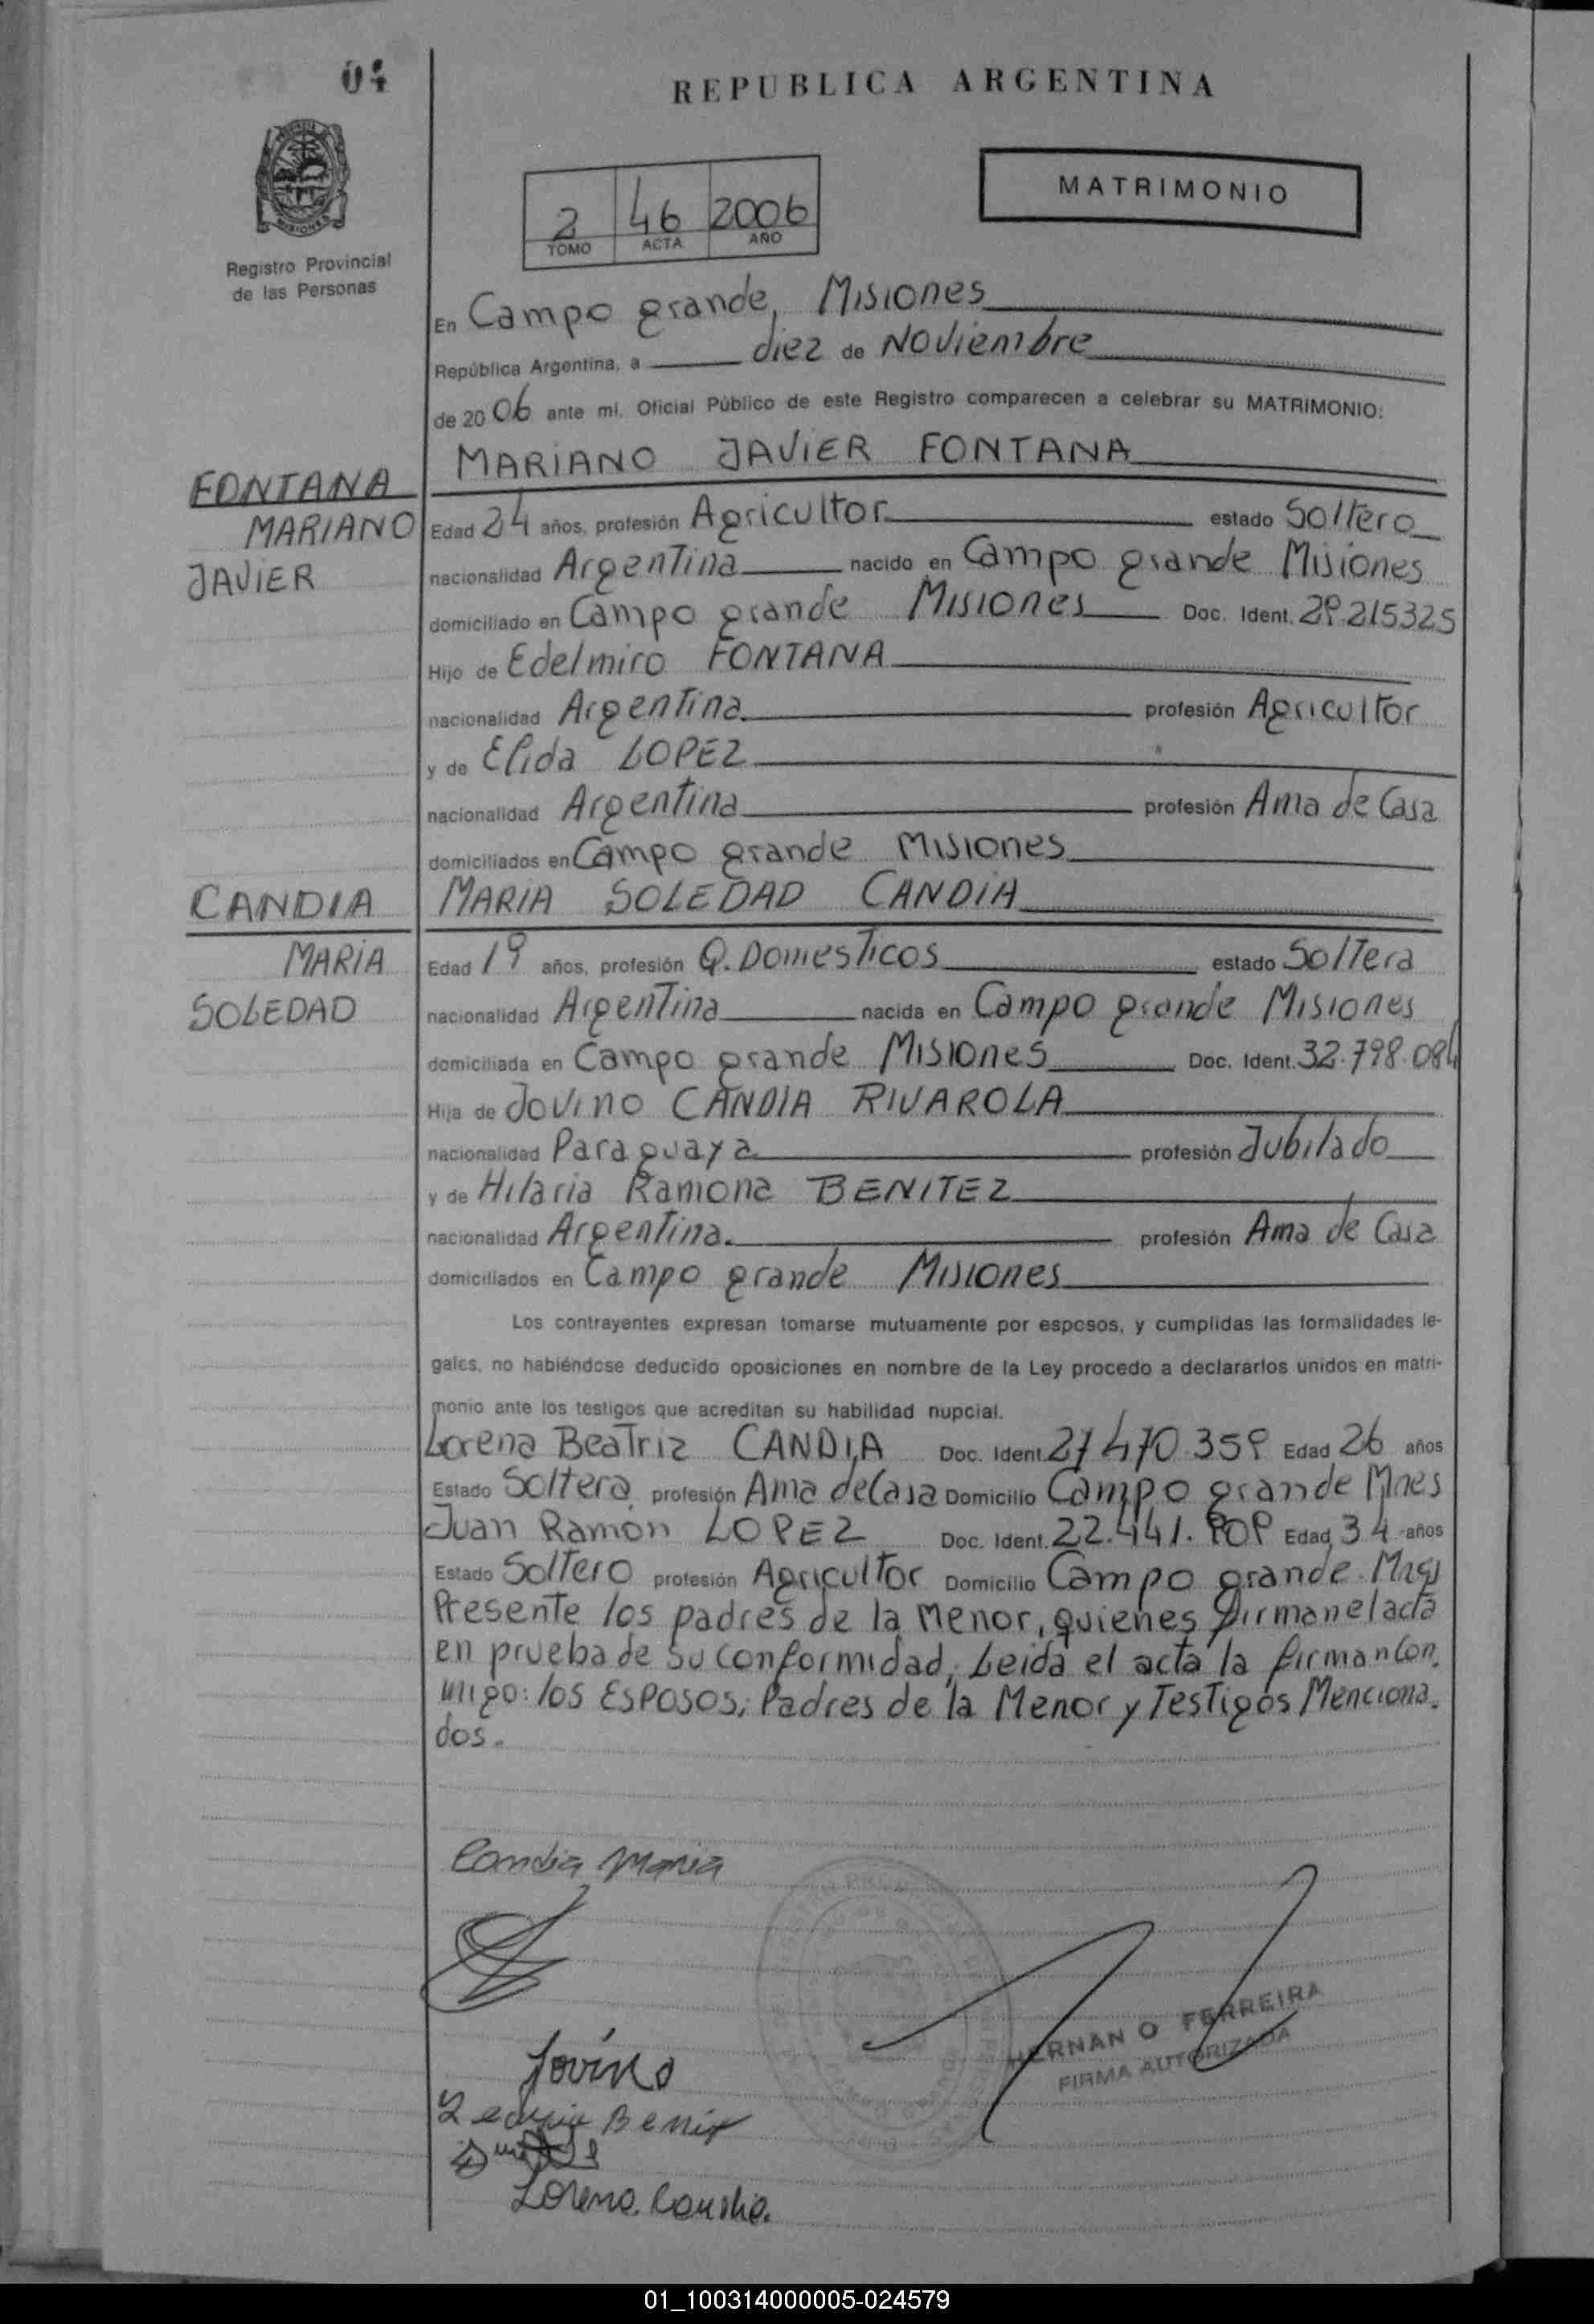 04
REPUBLICA ARGENTINA
MATRIMONIO
2 46 2006
TOMO ACTA AÑO
MISIONES
Registro Provincial
de las Personas
En Campo grande, Misiones
República Argentina, a diez de Noviembre
de 2006 ante mi, Oficial Público de este Registro comparecen a celebrar su MATRIMONIO:
MARIANO JAVIER FONTANA
FONTANA
MARIANO
JAVIER
Edad 24 años, profesión Agricultor estado Soltero
nacionalidad Argentina nacido en Campo grande Misiones
domiciliado en Campo grande Misiones Doc. Ident. 29.215325
Hijo de Edelmiro FONTANA
nacionalidad Argentina profesión Agricultor
y de Elida LOPEZ
nacionalidad Argentina profesión Ama de Casa
domiciliados en Campo grande Misiones
CANDIA
MARIA
SOLEDAD
MARIA SOLEDAD CANDIA
Edad 19 años, profesión Q. Domesticos estado Soltera
nacionalidad Argentina nacida en Campo grande Misiones
domiciliada en Campo grande Misiones Doc. Ident. 32.798.084
Hija de Jovino CANDIA RIVAROLA
nacionalidad Paraguaya profesión Jubilado
y de Hilaria Ramona BENITEZ
nacionalidad Argentina. profesión Ama de Casa
domiciliados en Campo grande Misiones
Los contrayentes expresan tomarse mutuamente por esposos, y cumplidas las formalidades le-
gales, no habiéndose deducido oposiciones en nombre de la Ley procedo a declararlos unidos en matri-
monio ante los testigos que acreditan su habilidad nupcial.
Lorena Beatriz CANDIA Doc. Ident. 27.470.359 Edad 26 años
Estado Soltera profesión Ama de Casa Domicilio Campo grande Mnes
Juan Ramon LOPEZ Doc. Ident. 22.441.909 Edad 34 años
Estado Soltero profesión Agricultor Domicilio Campo grande Mnes
Presente los padres de la Menor, quienes firman el acta
en prueba de su conformidad, Leida el acta la firman con
migo: los Esposos, Padres de la Menor y Testigos Menciona.
dos.
Candia Maria
Jovino
Lorena Candia.
HERNAN O FERREIRA
FIRMA AUTORIZADA
01_100314000005-024579